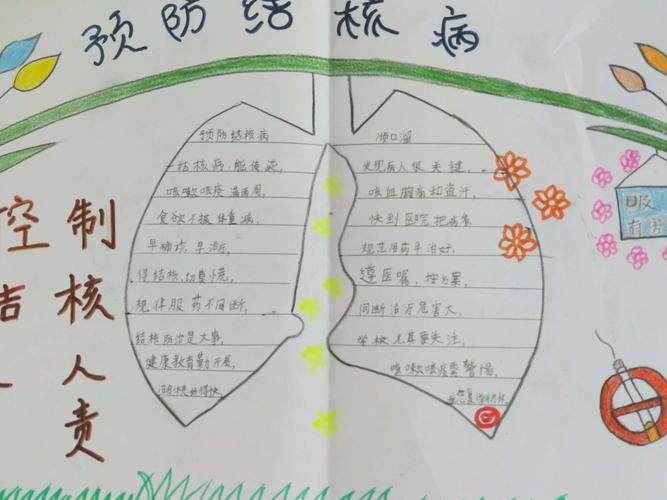 预防结核病
预防结核病
一结核病,能传染,
咳嗽咳痰满两周,
食欲不振体重减,
早确诊,早治疗,
得结核,切莫慌,
规律服药不间断,
结核防治是大事,
健康教育勤开展,
顺口溜
发现病人很关键,
咳血胸痛和盗汗,
快到医院把病看,
规范用药早治好,
遵医嘱,按方案,
间断治疗危害大,
学校尤其要关注,
咳嗽咳痰要警惕,
控制
结核
人
人责
吸
有害